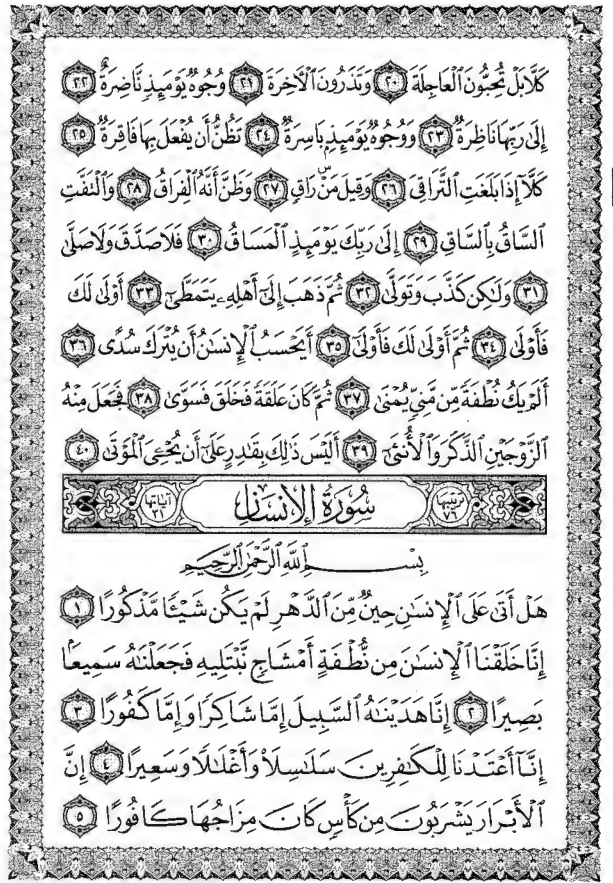 كَلَّا بَلْ تُحِبُّونَ ٱلْعَاجِلَةَ ٢٠ وَتَذَرُونَ ٱلْءَاخِرَةَ ٢١ وُجُوهٌ يَوْمَئِذٍ نَّاضِرَةٌ ٢٢
إِلَىٰ رَبِّهَا نَاظِرَةٌ ٢٣ وَوُجُوهٌ يَوْمَئِذٍۭ بَاسِرَةٌ ٢٤ تَظُنُّ أَن يُفْعَلَ بِهَا فَاقِرَةٌ ٢٥
كَلَّآ إِذَا بَلَغَتِ ٱلتَّرَاقِىَ ٢٦ وَقِيلَ مَنْۜ رَاقٍ ٢٧ وَظَنَّ أَنَّهُ ٱلْفِرَاقُ ٢٨ وَٱلْتَفَّتِ
ٱلسَّاقُ بِٱلسَّاقِ ٢٩ إِلَىٰ رَبِّكَ يَوْمَئِذٍ ٱلْمَسَاقُ ٣٠ فَلَا صَدَّقَ وَلَا صَلَّىٰ
٣١ وَلَٰكِن كَذَّبَ وَتَوَلَّىٰ ٣٢ ثُمَّ ذَهَبَ إِلَىٰٓ أَهْلِهِۦ يَتَمَطَّىٰٓ ٣٣ أَوْلَىٰ لَكَ
فَأَوْلَىٰ ٣٤ ثُمَّ أَوْلَىٰ لَكَ فَأَوْلَىٰٓ ٣٥ أَيَحْسَبُ ٱلْإِنسَٰنُ أَن يُتْرَكَ سُدًى ٣٦
أَلَمْ يَكُ نُطْفَةً مِّن مَّنِىٍّ يُمْنَىٰ ٣٧ ثُمَّ كَانَ عَلَقَةً فَخَلَقَ فَسَوَّىٰ ٣٨ فَجَعَلَ مِنْهُ
ٱلزَّوْجَيْنِ ٱلذَّكَرَ وَٱلْأُنثَىٰٓ ٣٩ أَلَيْسَ ذَٰلِكَ بِقَٰدِرٍ عَلَىٰٓ أَن يُحْـِۧىَ ٱلْمَوْتَىٰ ٤٠
ترتيبها ٧٦ سُورَةُ الإِنسَانِ آياتها ٣١
بِسْمِ ٱللَّهِ ٱلرَّحْمَٰنِ ٱلرَّحِيمِ
هَلْ أَتَىٰ عَلَى ٱلْإِنسَٰنِ حِينٌ مِّنَ ٱلدَّهْرِ لَمْ يَكُن شَيْـًٔا مَّذْكُورًا ١
إِنَّا خَلَقْنَا ٱلْإِنسَٰنَ مِن نُّطْفَةٍ أَمْشَاجٍ نَّبْتَلِيهِ فَجَعَلْنَٰهُ سَمِيعًۢا
بَصِيرًا ٢ إِنَّا هَدَيْنَٰهُ ٱلسَّبِيلَ إِمَّا شَاكِرًا وَإِمَّا كَفُورًا ٣
إِنَّآ أَعْتَدْنَا لِلْكَٰفِرِينَ سَلَٰسِلَا۟ وَأَغْلَٰلًا وَسَعِيرًا ٤ إِنَّ
ٱلْأَبْرَارَ يَشْرَبُونَ مِن كَأْسٍ كَانَ مِزَاجُهَا كَافُورًا ٥